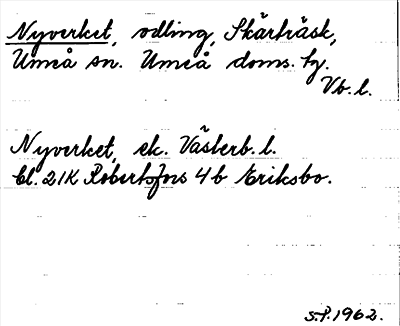 Nyverket, odling, Skärträsk,
Umeå sn. Umeå doms. hg.
Vb. l.
Nyverket, ek. Västerb. l.
bl. 21K Robertsfors 4b Eriksbo.
S.P. 1962.